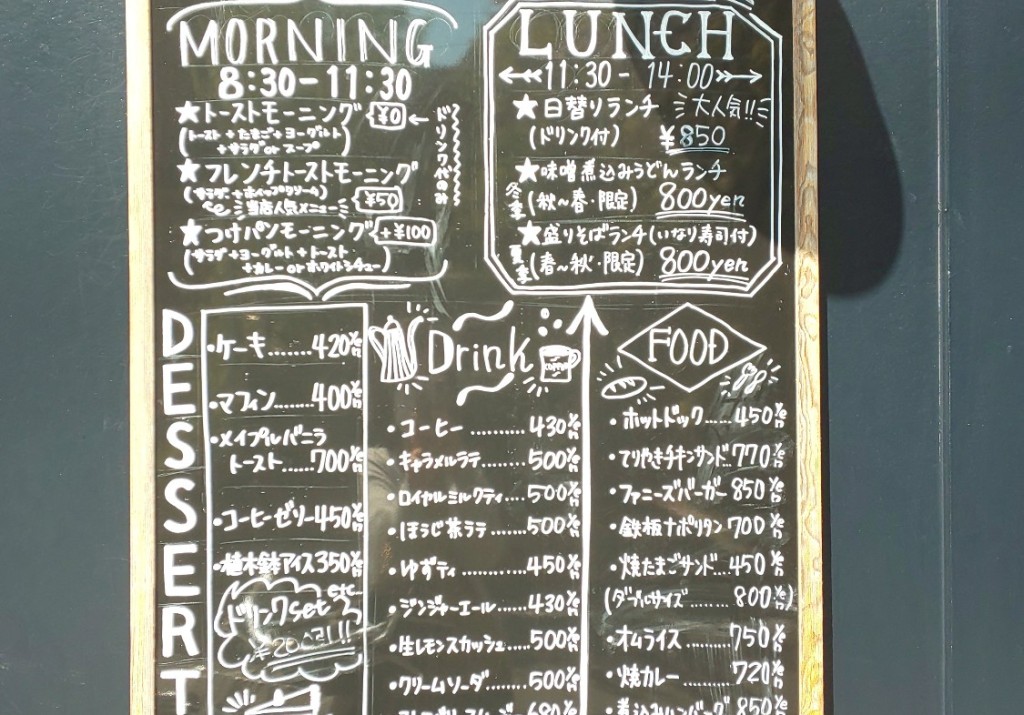 MORNING
8:30-11:30
★トーストモーニング ¥0 ← ドリンク代のみ
(トースト+たまご+ヨーグルト
+サラダorスープ)
★フレンチトーストモーニング
(サラダ+ホイップクリーム) ¥50
当店人気メニュー
★つけパンモーニング +¥100
(サラダ+ヨーグルト+トースト
+カレーorホワイトシチュー)
LUNCH
11:30-14:00
★日替りランチ 大人気!!
(ドリンク付) ¥850
★味噌煮込みうどんランチ
冬季(秋〜春・限定) 800yen
★盛りそばランチ(いなり寿司付)
夏季(春〜秋・限定) 800yen
DESSERT
・ケーキ.......420yen
・マフィン........400yen
・メイプルバニラ
トースト......700yen
・コーヒーゼリー450yen
・植木鉢アイス350yen
etc...
ドリンクset
Drink
COFFEE
・コーヒー..........430yen
・キャラメルラテ........500yen
・ロイヤルミルクティ....500yen
・ほうじ茶ラテ.......500yen
・ゆずティ..........450yen
・ジンジャーエール......430yen
・生レモンスカッシュ.....500yen
・クリームソーダ.......500yen
FOOD
・ホットドック......450yen
・てりやきチキンサンド...770yen
・ファニーズバーガー 850yen
・鉄板ナポリタン 700yen
・焼たまごサンド...450yen
(ダブルサイズ........800yen)
・オムライス.......750yen
・焼カレー........720yen
・煮込みハンバーグ 850yen